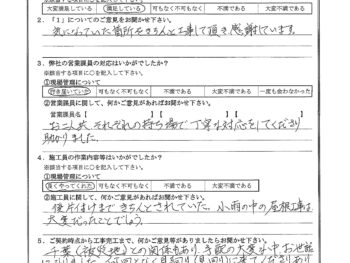 ※該当する項目に○を記入して下さい。
大変満足している 満足している 可も無く不可も無く 不満である 大変不満である
2.「1」についてのご意見をお聞かせ下さい。
気になっていた箇所をきちんと工事して頂き感謝しています。
3. 弊社の営業課員の対応はいかがでしたか？
※該当する項目に○を記入して下さい。
①現場管理について
行き届いていた 可も無く不可も無く 不満である 大変不満である 一度も会わなかった
②営業課員に関して、何かご意見があればお聞かせ下さい。
営業課員名【 】【 】【 】
お二人共、それぞれの持ち場で丁寧な対応をしてくださり
助かりました。
4. 施工員の作業内容等はいかがでしたか？
※該当する項目に○を記入して下さい。
①現場管理について
良くやってくれた 可も無く不可も無く 不満である 大変不満である
②施工員に関して、何かご意見があればお聞かせ下さい。
後片付けまできちんとされていた。小雨の中の屋根工事は
大変だったことでしょう
5. ご契約時点から工事完工まで、何かご意見等がありましたらお聞かせ下さい。
千葉(被災地)との関係もあり、手配の大変な中お世話